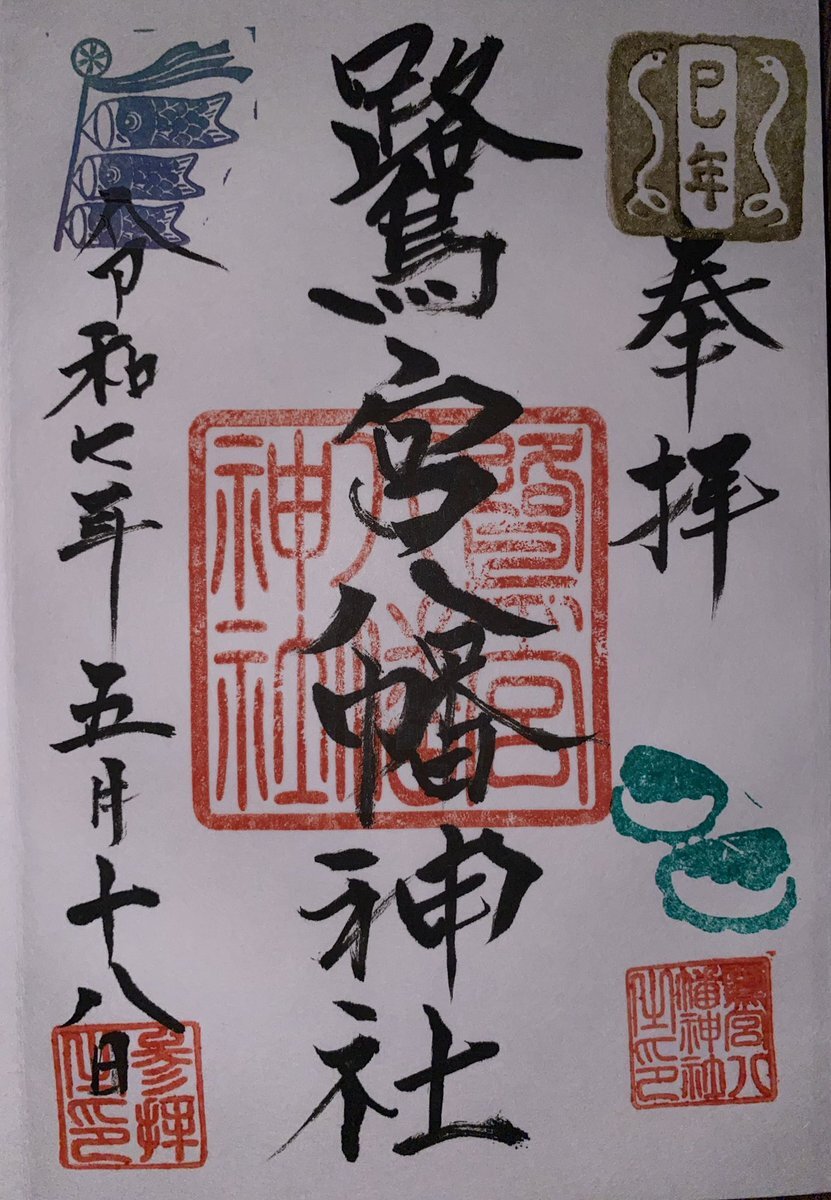 巳年
奉拝
鷺宮八
幡神社
之印
鷺宮八幡神社
鷺宮
八幡
神社
令和七年五月十八日
参拝
之印